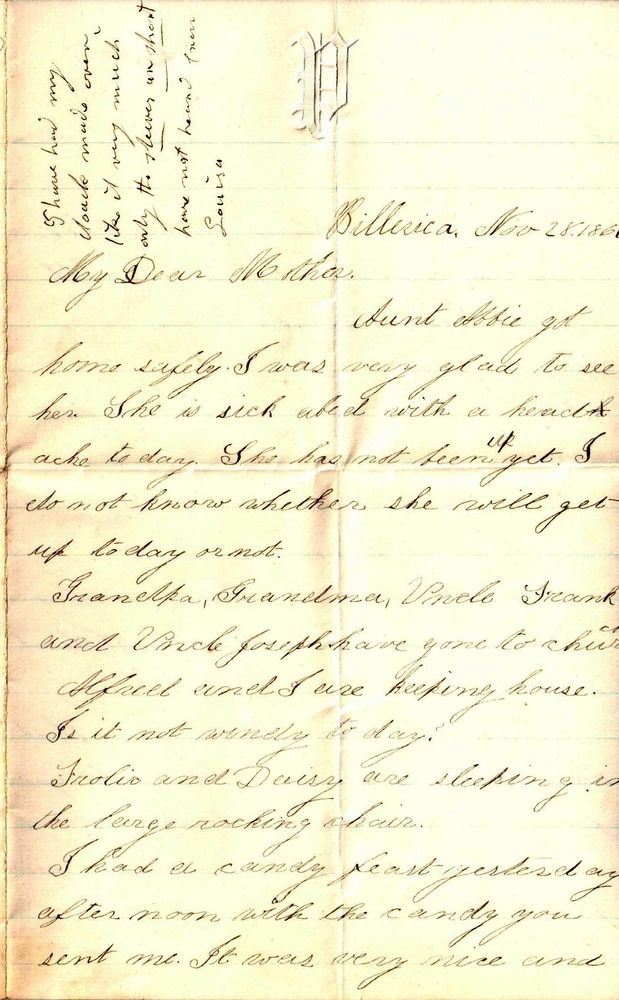 I have had my
cloack made over,
like it very much
only the sleeves are short
have not heard from
Louisa
Billerica, Nov 28. 186
My Dear Mother.
Aunt Abbie got
home safely. I was very glad to see
her. She is sick abed with a head
ache to day. She has not been up yet. I
do not know whether she will get
up to day or not.
Grandpa, Grandma, Uncle Frank
and Uncle Joseph have gone to chur
Alfred and I are keeping house.
Is it not windy to day?
Frolic and Daisy are sleeping in
the large rocking chair.
I had a candy feast yesterday
after noon with the candy you
sent me. It was very nice and